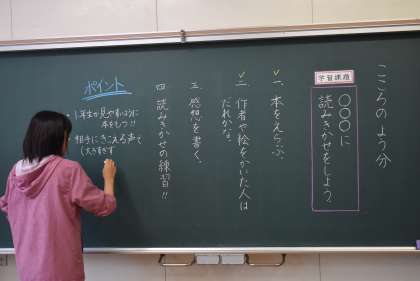 こころのよう分
学習課題
○○○に
読みきかせをしよう。
一、本をえらぶ。
二、作者や絵をかいた人は
だれかな。
三、感想を書く。
四、読みきかせの練習!!
ポイント
1年生が見やすいように
本をもつ!!
相手にきこえる声で
(大きすぎず